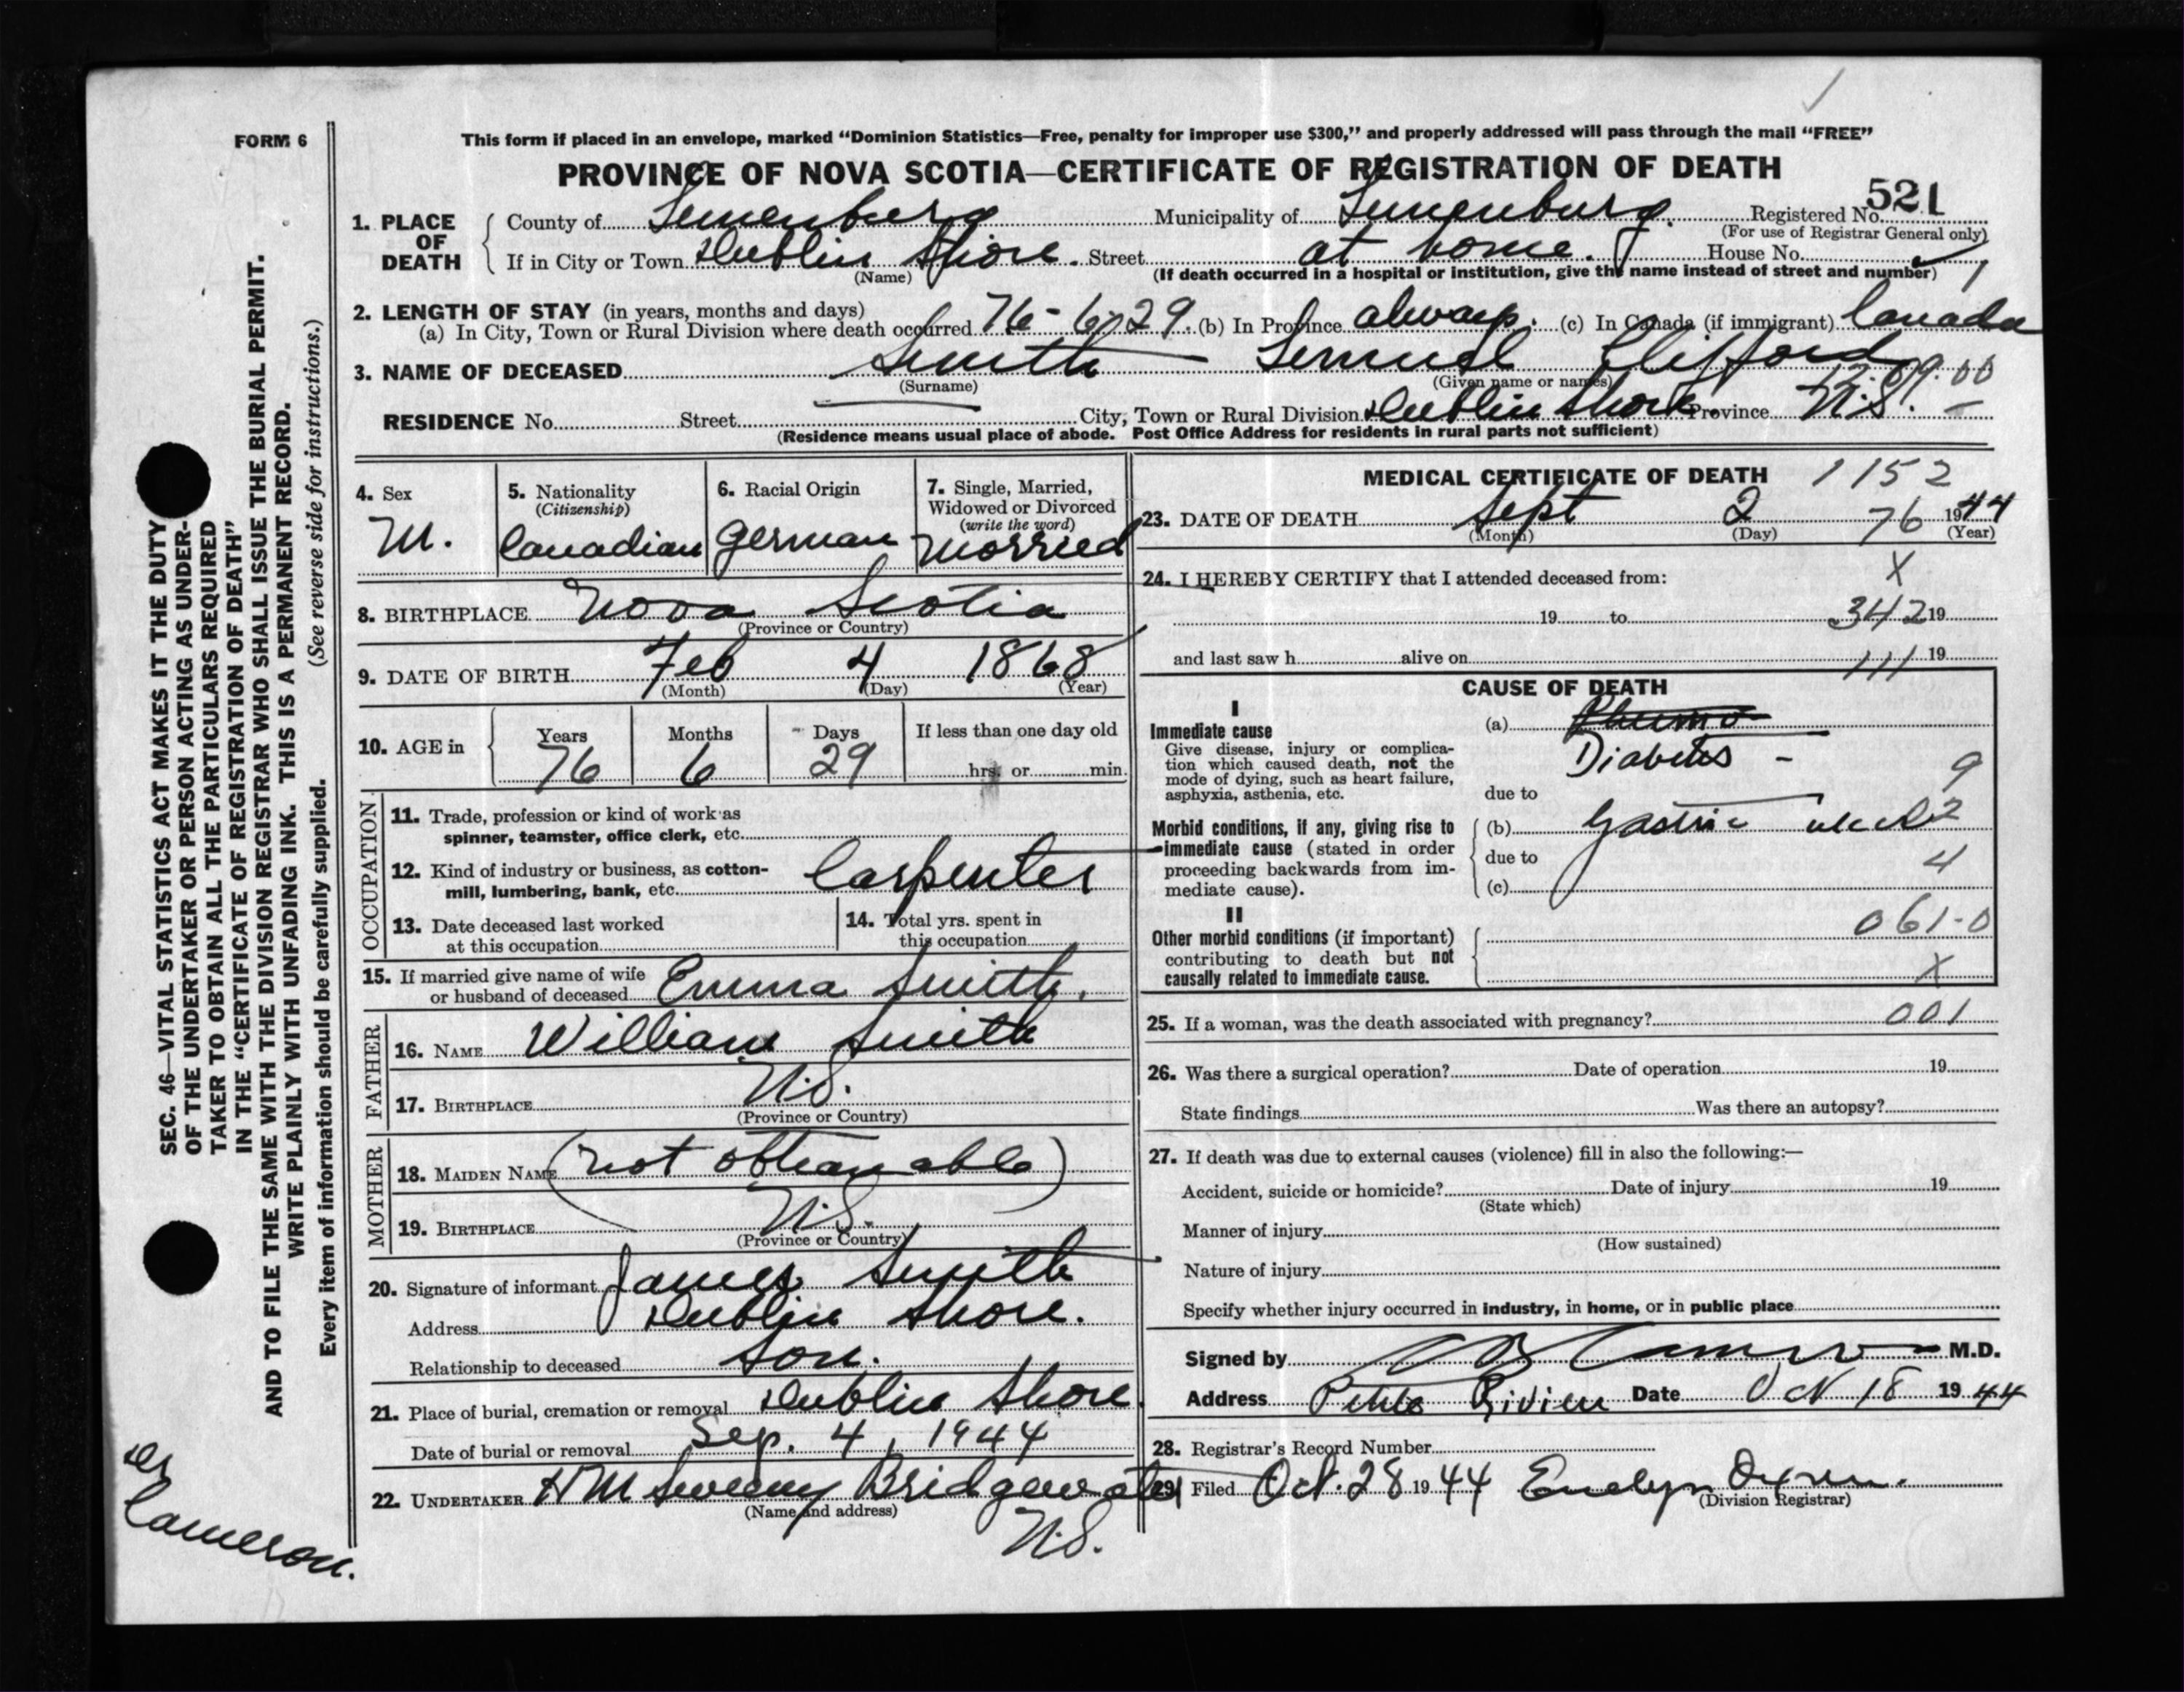 FORM 6
This form if placed in an envelope, marked “Dominion Statistics—Free, penalty for improper use $300,” and properly addressed will pass through the mail “FREE”
PROVINCE OF NOVA SCOTIA—CERTIFICATE OF REGISTRATION OF DEATH
1. PLACE OF DEATH
County of Lunenburg Municipality of Lunenburg. Registered No. 521
(For use of Registrar General only)
If in City or Town Dublin Shore. Street at home. House No.
(Name) (If death occurred in a hospital or institution, give the name instead of street and number)
2. LENGTH OF STAY (in years, months and days)
(a) In City, Town or Rural Division where death occurred 76-6-29. (b) In Province always. (c) In Canada (if immigrant) Canada
3. NAME OF DECEASED Smith — Lemuel Clifford
(Surname) (Given name or names)
RESIDENCE No. Street City, Town or Rural Division Dublin Shore Province N.S. —
(Residence means usual place of abode. Post Office Address for residents in rural parts not sufficient)
4. Sex
M.
5. Nationality
(Citizenship)
Canadian
6. Racial Origin
German
7. Single, Married,
Widowed or Divorced
(write the word)
Married
8. BIRTHPLACE Nova Scotia
(Province or Country)
9. DATE OF BIRTH Feb 4 1868
(Month) (Day) (Year)
10. AGE in
Years Months Days If less than one day old
76 6 29 hrs. or min.
OCCUPATION
11. Trade, profession or kind of work as
spinner, teamster, office clerk, etc.
12. Kind of industry or business, as cotton-
mill, lumbering, bank, etc. Carpenter
13. Date deceased last worked
at this occupation
14. Total yrs. spent in
this occupation
15. If married give name of wife
or husband of deceased Emma Smith.
FATHER
16. NAME William Smith
17. BIRTHPLACE N.S.
(Province or Country)
MOTHER
18. MAIDEN NAME (not obtainable)
19. BIRTHPLACE N.S.
(Province or Country)
20. Signature of informant James Smith
Address Dublin Shore.
Relationship to deceased Son.
21. Place of burial, cremation or removal Dublin Shore.
Date of burial or removal Sep. 4, 1944
22. UNDERTAKER H M Sweeny Bridgewater
(Name and address)
N.S.
MEDICAL CERTIFICATE OF DEATH 1152
23. DATE OF DEATH Sept 2 76 1944
(Month) (Day) (Year)
24. I HEREBY CERTIFY that I attended deceased from: X
19 to 342 19
and last saw h alive on 111 19
CAUSE OF DEATH
I
Immediate cause
Give disease, injury or complica-
tion which caused death, not the
mode of dying, such as heart failure,
asphyxia, asthenia, etc.
(a)
Diabetes - 9
due to
Morbid conditions, if any, giving rise to
immediate cause (stated in order
proceeding backwards from im-
mediate cause).
(b) Gastric ulcer 2
due to 4
(c)
II
Other morbid conditions (if important)
contributing to death but not
causally related to immediate cause.
061-0
X
25. If a woman, was the death associated with pregnancy? 001
26. Was there a surgical operation? Date of operation 19
State findings Was there an autopsy?
27. If death was due to external causes (violence) fill in also the following:—
Accident, suicide or homicide? Date of injury 19
(State which)
Manner of injury
(How sustained)
Nature of injury
Specify whether injury occurred in industry, in home, or in public place
Signed by Cameron M.D.
Address Petite Riviere Date Oct 18 1944
28. Registrar's Record Number
29. Filed Oct. 28 1944 Evelyn
(Division Registrar)
SEC. 46—VITAL STATISTICS ACT MAKES IT THE DUTY
OF THE UNDERTAKER OR PERSON ACTING AS UNDER-
TAKER TO OBTAIN ALL THE PARTICULARS REQUIRED
IN THE “CERTIFICATE OF REGISTRATION OF DEATH”
AND TO FILE THE SAME WITH THE DIVISION REGISTRAR WHO SHALL ISSUE THE BURIAL PERMIT.
WRITE PLAINLY WITH UNFADING INK. THIS IS A PERMANENT RECORD.
Every item of information should be carefully supplied. (See reverse side for instructions.)
Dr
Cameron.